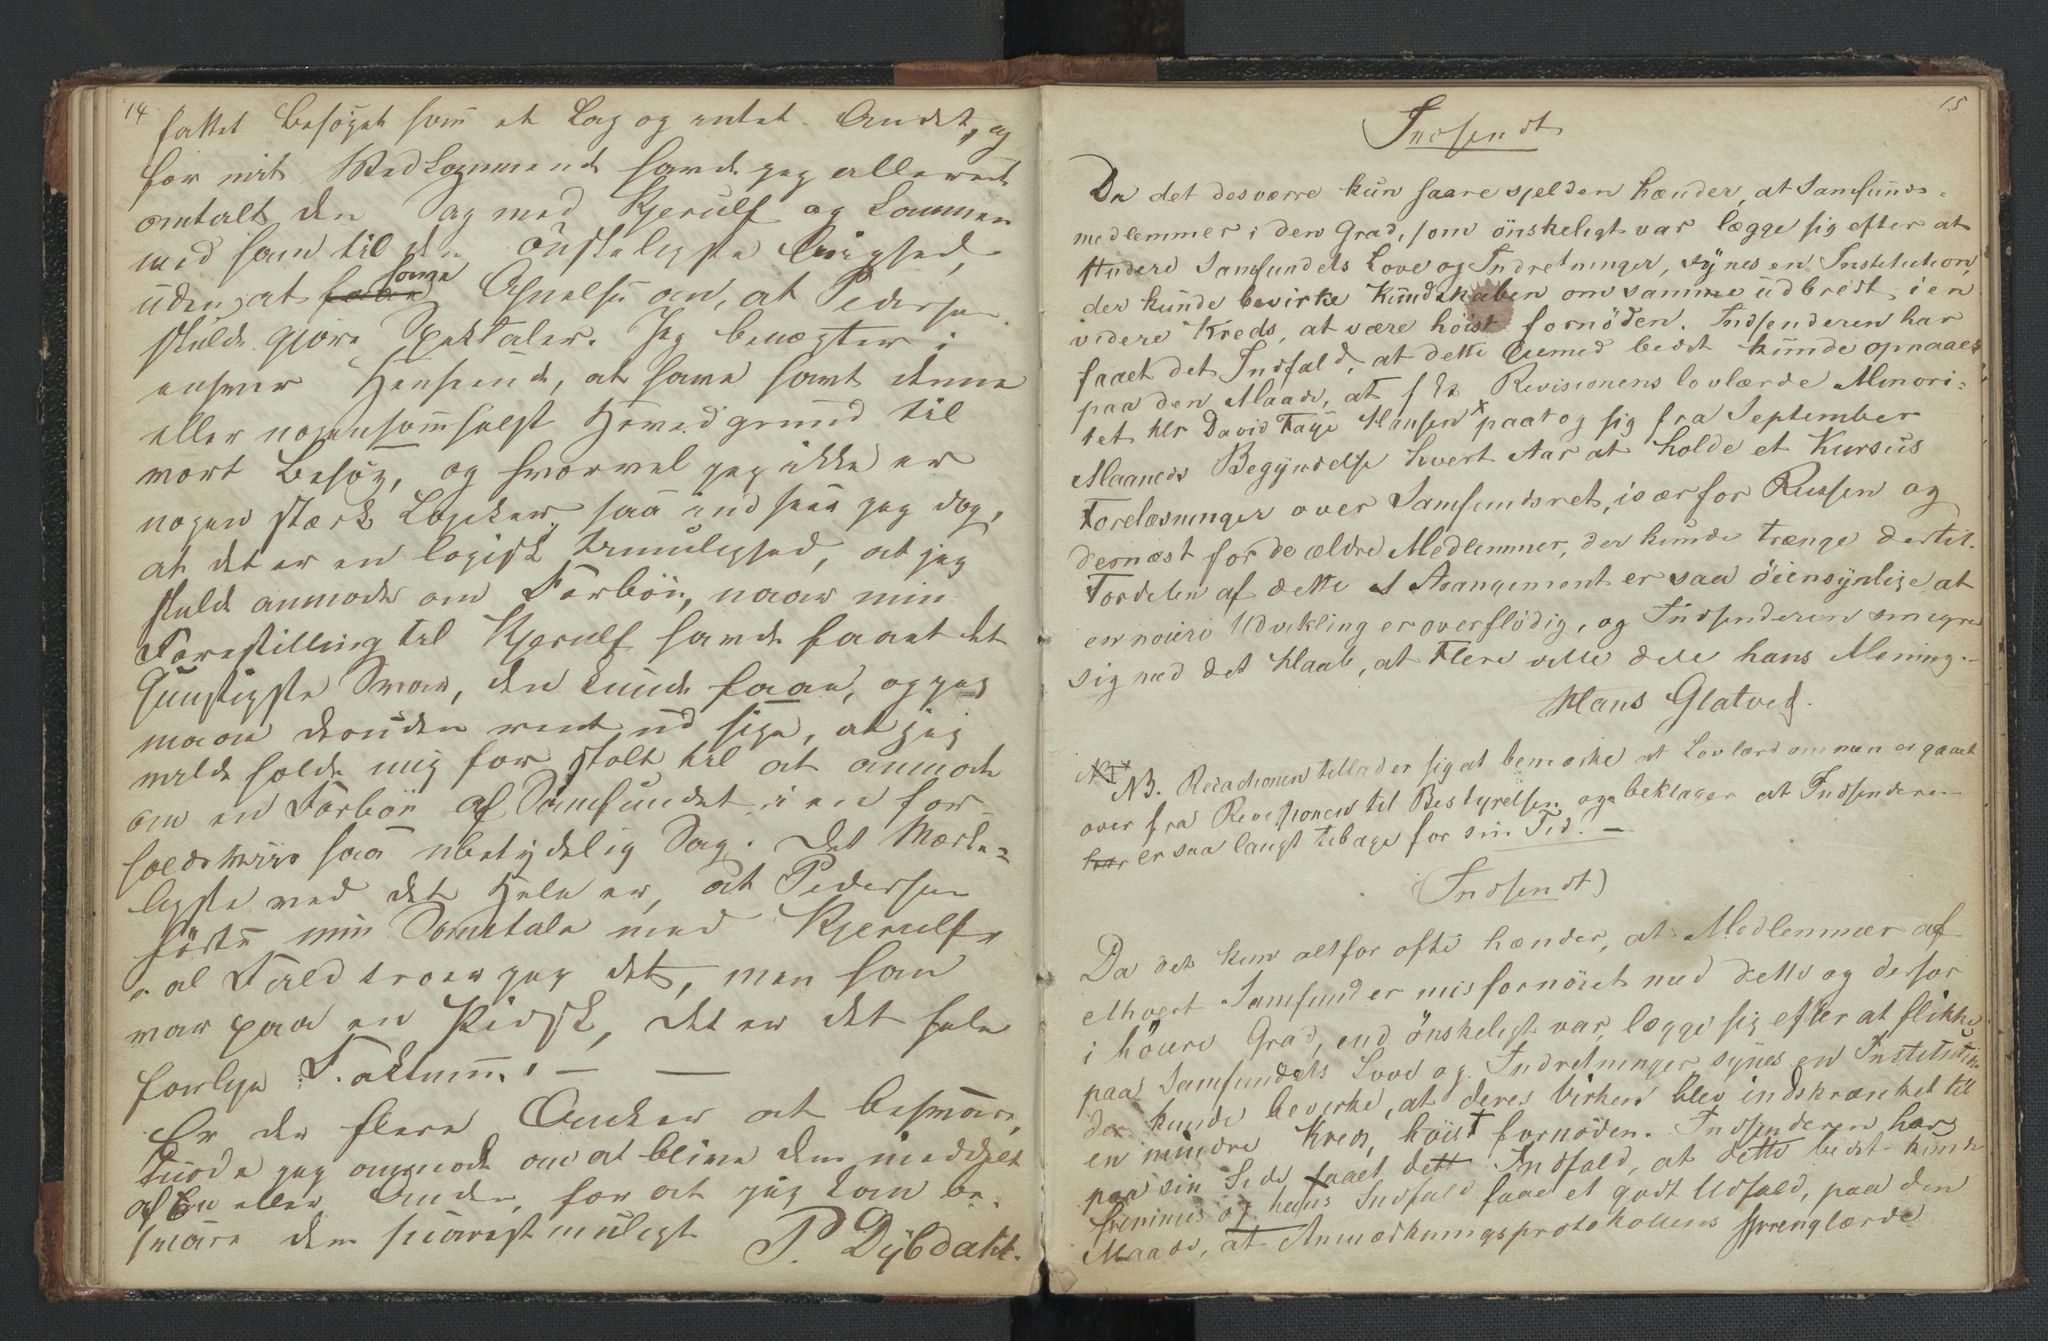 14
fattet Besøget som et Lag og intet Andet, og
for mit Vedkommende havde jeg allerede
omtalt den Sag med Kjerulf og kommen
med ham til den ønskeligste Enighed,
uden at have Anelse om, at Pedersen
skulde gjøre Spektakler. Jeg benægter i
enhver Henseende, at have havt denne
eller nogensomhelst Hovedgrund til
vort Besøg, og hvorvel jeg ikke er
nogen stærk Logiker, saa indseer jeg dog,
at det er en logisk Umulighed, at jeg
skulde anmode om Forbøn, naar min
Forestilling til Kjerulf havde faaet det
Gunstigste Svar, den kunde faae, og jeg
maa desuden rent ud sige, at jeg
vilde holde mig for stolt til at anmode
om en Forbøn af Samfundet i en for-
holdsviis saa ubetydelig Sag. Det Mærke-
ligste ved det Hele er, at Pedersen
hørte min Samtale med Kjerulf,
i al Fald troer jeg det, men han
var paa en Pidsk, det er det hele
forlyn Faktum. — —
Er der flere Anker at besvare,
turde jeg anmode om at blive dem meddelt
af En eller Anden, for at jeg kan be-
svare dem snarest muligt
P. Dybdahl.
15
Indsendt
Da det desværre kun saare sjelden hænder, at Samfunds-
medlemmer i den Grad, som ønskeligt var lægge sig efter at
studere Samfundets Love og Indretninger, synes en Institution,
der kunde bevirke Kundskaben om samme udbredt i en
videre Kreds, at være høist fornøden. Indsenderen har
faaet det Indfald, at dette Øiemed bedst kunde opnaaes
paa den Maade, at f Ex Revisionens lovlærde Minori-
tet Hr David Faye Hansen x paatog sig fra September
Maaneds Begyndelse hvert Aar at holde et Kursus
Forelæsninger over Samfundsret, især for Russen og
dernæst for de ældre Medlemmer, der kunde trænge dertil.
Fordelen af dette Arangement er saa øiensynlige at
en nøiere Udvikling er overflødig, og Indsenderen smigrer
sig med det Haab, at Flere ville dele hans Mening.—
Hans Glatved.
x NB. Redactionen tillader sig at bemærke at Lovlærdommen er gaaet
over fra Revisionen til Bestyrelsen og beklager at Indsenderen
har er saa langt tilbage for sin Tid. —
(Indsendt)
Da det kun altfor ofte hænder, at Medlemmer af
ethvert Samfund er misfornøiet med dette og derfor
i høiere Grad, end ønskeligt var, lægge sig efter at flikke
paa Samfundets Love og Indretninger, synes en Institution
der kunde bevirke, at deres Virken blev indskrænket til
en mindre Kreds, høist fornøden. Indsenderen har
paa sin Side faaet dett Indfald, at dette bedst kunde
fremmes og hans Indfald faae et godt Udfald, paa den
Maade, at Anmærkningsprotokollens sprenglærde